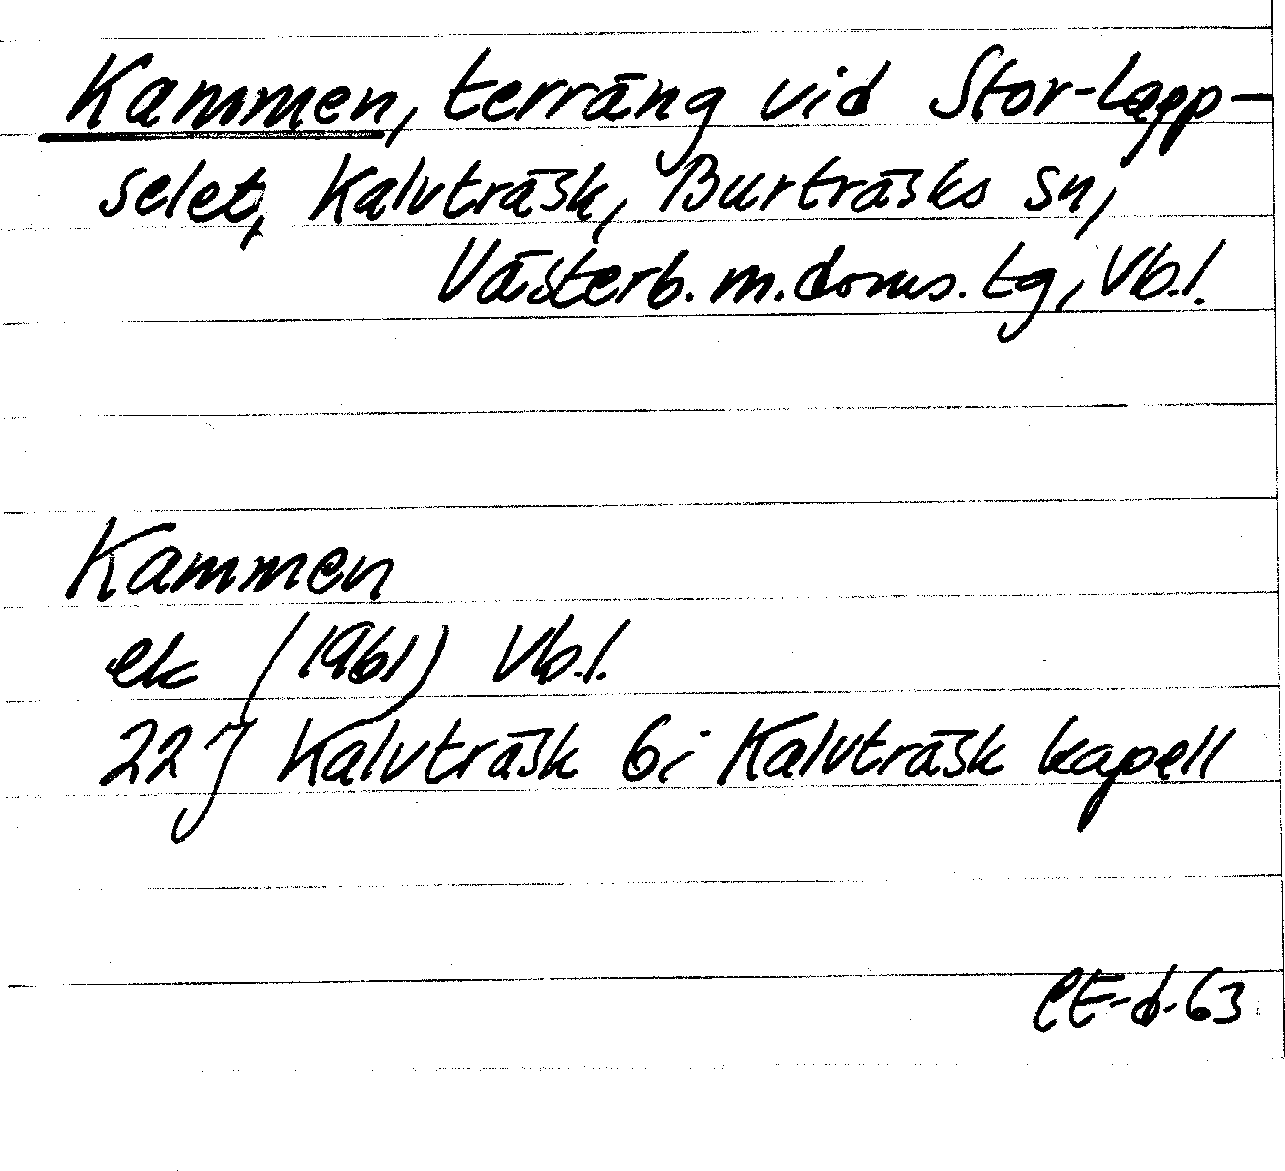 Kammen, terräng vid Stor-Lapp-
selet, Kalvträsk, Burträsks sn,
Västerb. m. doms. tg, Vb.l.
Kammen
ek (1961) Vb.l.
22 J Kalvträsk 6i Kalvträsk kapell